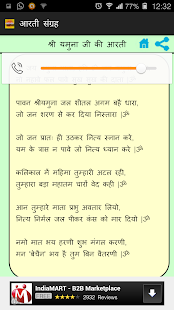 12:32
आरती संग्रह
श्री यमुना जी की आरती
पावन श्रीयमुना जल शीतल अगम बहै धारा,
जो जन शरण से कर दिया निस्तारा |ॐ
जो जन प्रातः ही उठकर नित्य स्नान करे,
यम के त्रास न पावे जो नित्य ध्यान करे |ॐ
कलिकाल में महिमा तुम्हारी अटल रही,
तुम्हारा बड़ा महातम चारों वेद कही |ॐ
आन तुम्हारे माता प्रभु अवतार लियो,
नित्य निर्मल जल पीकर कंस को मार दियो |ॐ
नमो मात भय हरणी शुभ मंगल करणी,
मन 'बेचैन' भय है तुम बिन वैतरणी |ॐ
IndiaMART - B2B Marketplace
FREE 2992 Reviews